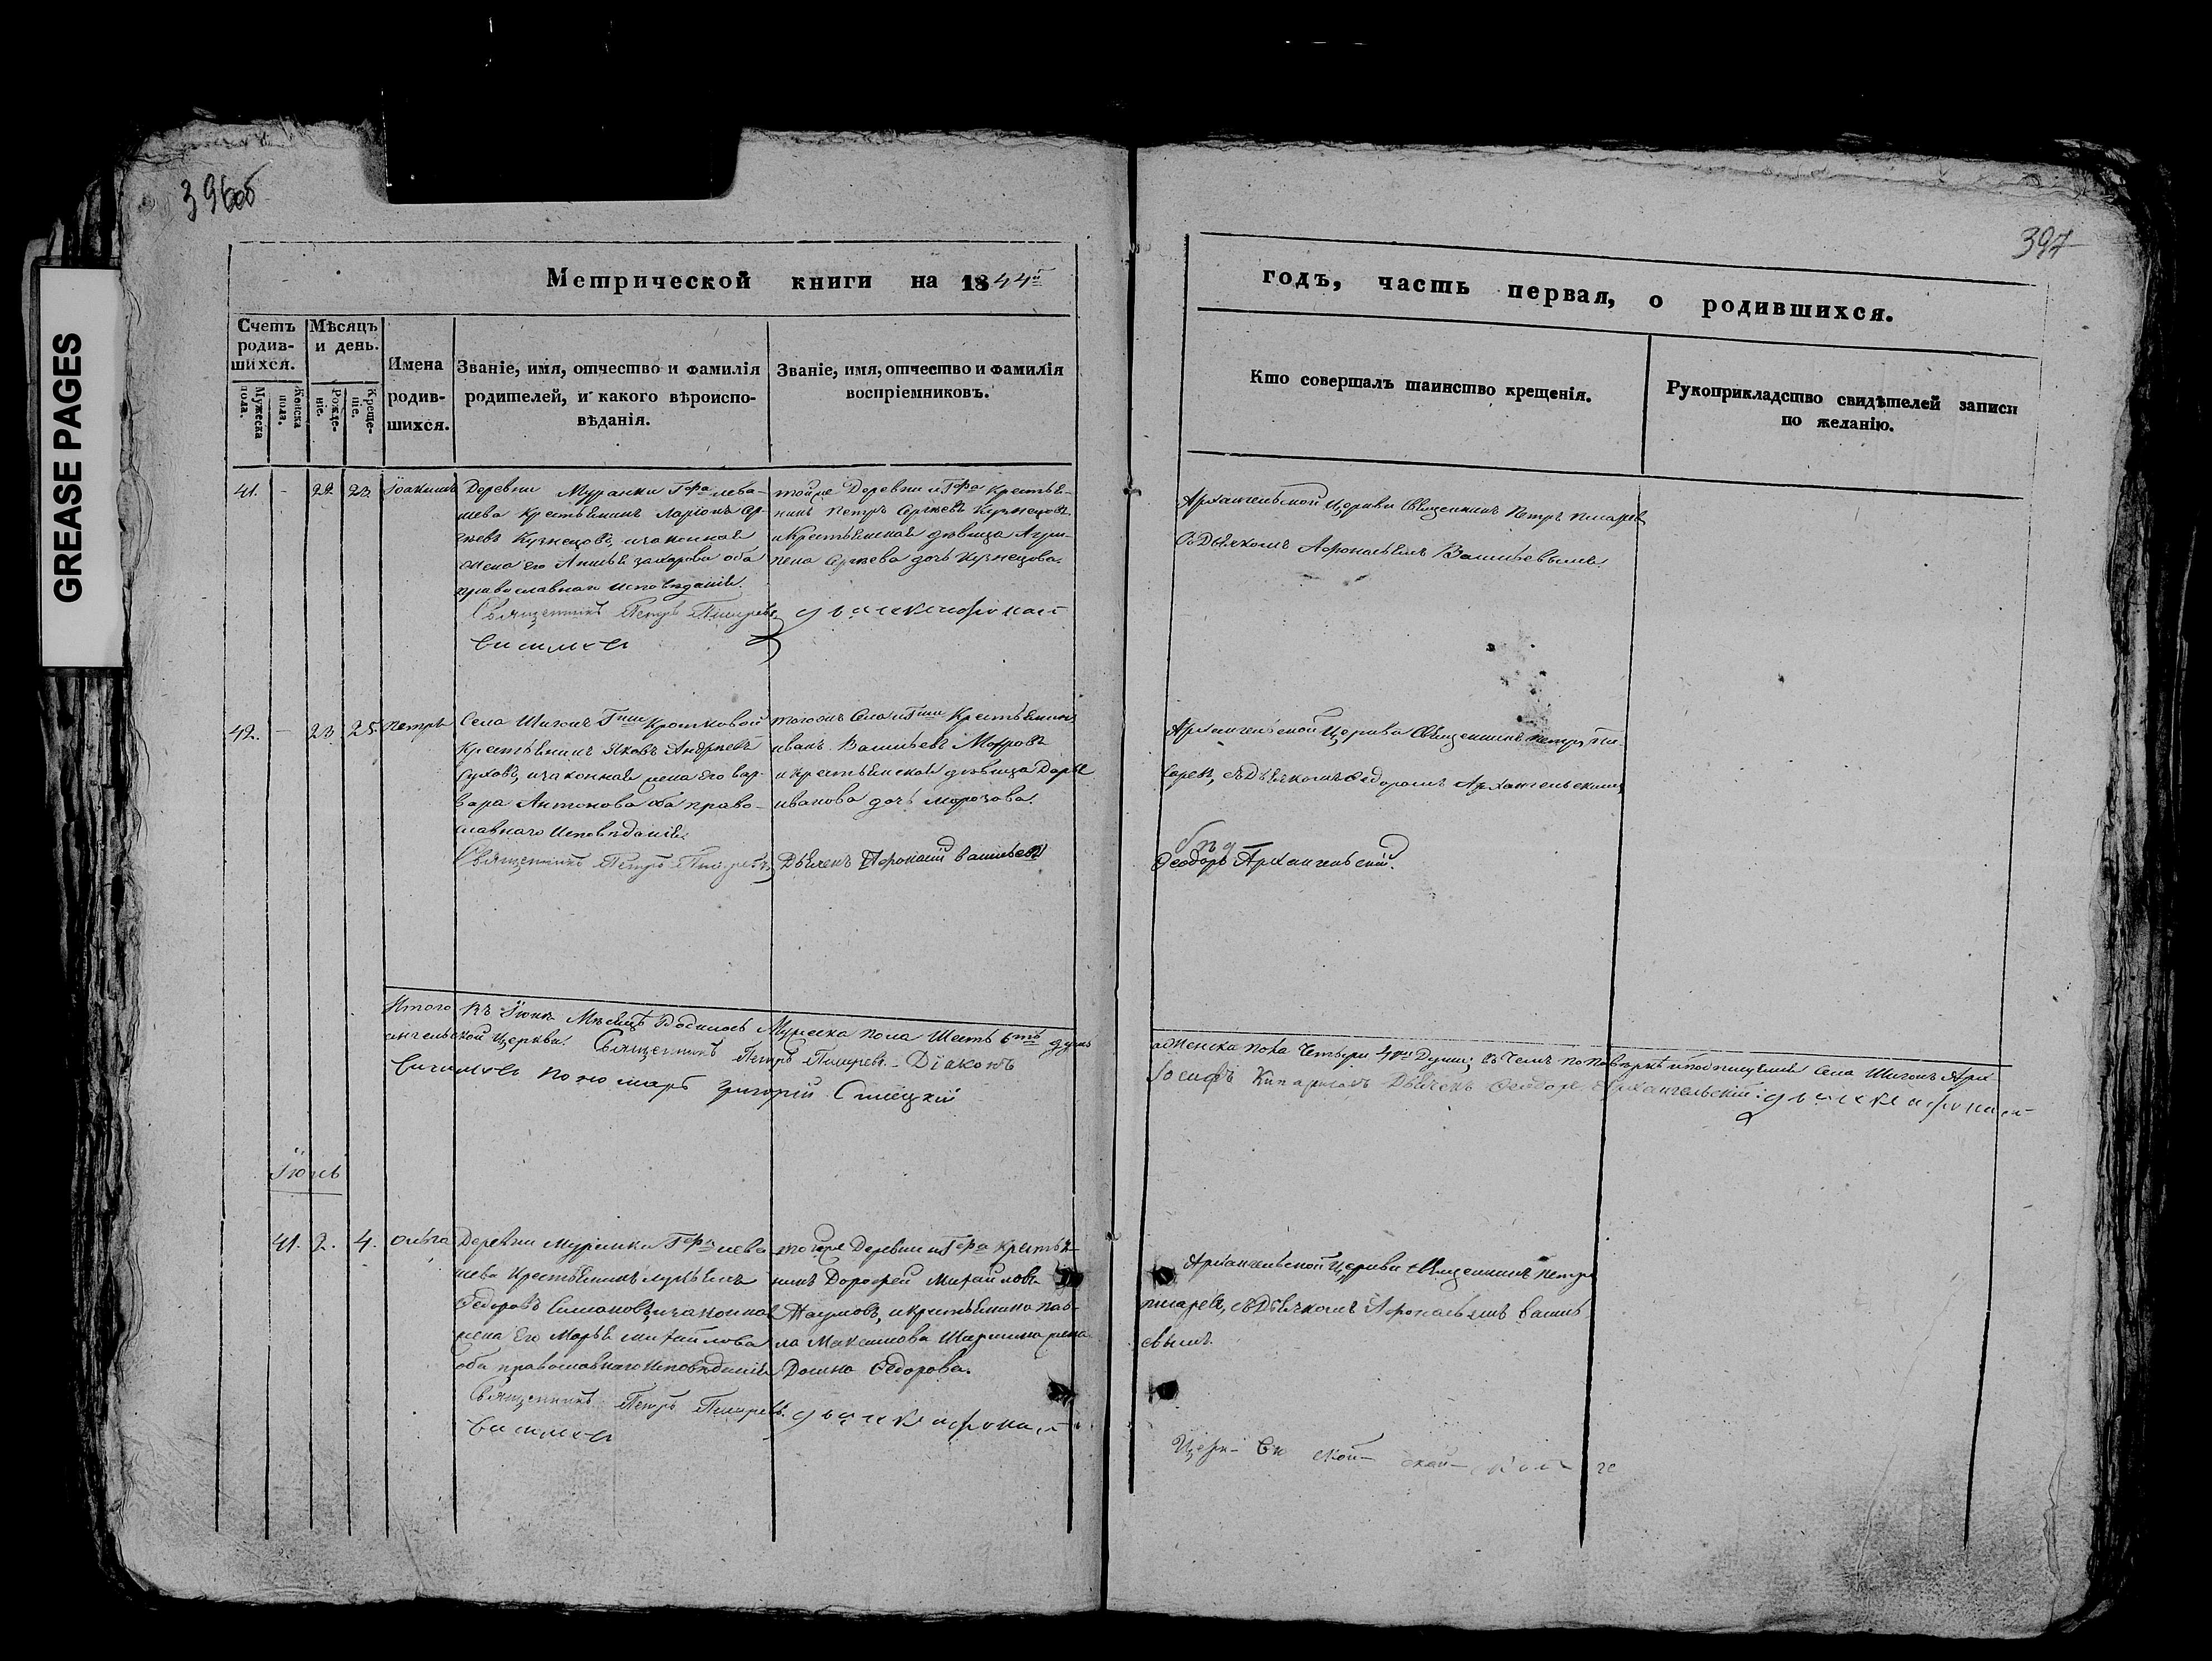 GREASE PAGES
396об
397
Метрической книги на 1844й
годъ, часть первая, о родившихся.
Счетъ родив-
шихся.
Мужеска пола.
Женска пола.
Мѣсяцъ и день.
Рожде-
ніе.
Креще-
ніе.
Имена
родив-
шихся.
Званіе, имя, отчество и фамилія
родителей, и какого вѣроиспо-
вѣданія.
Званіе, имя, отчество и фамилія
воспріемниковъ.
Кто совершалъ таинство крещенія.
Рукоприкладство свидѣтелей записи
по желанію.
41. - 22. 23. Іоакимъ
Деревни Муранки Г-ра Лева-
шева Крестьянинъ Ларіонъ Сер-
гѣевъ Кузнецовъ, и законная
жена его Анисья Захарова оба
православнаго исповѣданія.
Священникъ Петръ Писаревъ
тойже Деревни и Г-ра Крестья-
нинъ Петръ Сергѣевъ Кузнецовъ
и Крестьянская дѣвица Агри-
пена Сергѣева дочь Кузнецова.
Архангельской Церкви Священникъ Петръ Писаревъ
Съ Дьячкомъ Афонасьемъ Васильевымъ.
42. - 23. 25. Петръ
Села Шигонъ Г-жи Кротковой
Крестьянинъ Яковъ Андреевъ
Суховъ, и законная жена Его Вар-
вара Антонова оба право-
славнаго Исповѣданія.
Священникъ Петръ Писаревъ
тогожъ Села и Г-жи Крестьянинъ
Иванъ Васильевъ
и крестьянская дѣвица Дарья
Иванова дочь Морозова.
Дьячекъ Афонасій Васильевъ
Архангельской Церкви Священникъ Петръ Пи-
саревъ, съ Дьячкомъ Федоромъ Архангельскимъ
Феодоръ Архангельскій.
Итого въ Іюнѣ Мѣсяцѣ Родилось Мужеска пола Шесть 6ть душъ
а Женска пола Четыре 4ре Души; въ чемъ по повѣркѣ и подписуемся Села Шигонъ Арх-
ангельской Церкви: Священникъ Петръ Писаревъ. Діаконъ
Іосифъ Кипарисовъ Дьячекъ Феодоръ Архангельскій:
пономарь Григорій
Іюль
41. 2. 4. Ольга
Деревни Муранки Г-ра Лева-
шева Крестьянинъ Лукьянъ
Федоровъ Симановъ, и законная
жена Его Марья Михайлова
оба православнаго Исповѣданія
Священникъ Петръ Писаревъ.
тойже Деревни и Г-ра Крестья-
нинъ Дорофей Михайловъ
Наумовъ, и крестьянина Пав-
ла Максимова жена
Домна Федорова.
Архангельской Церкви Священникъ Петръ
Писаревъ, съ Дьячкомъ Афонасьемъ Василь-
евымъ.